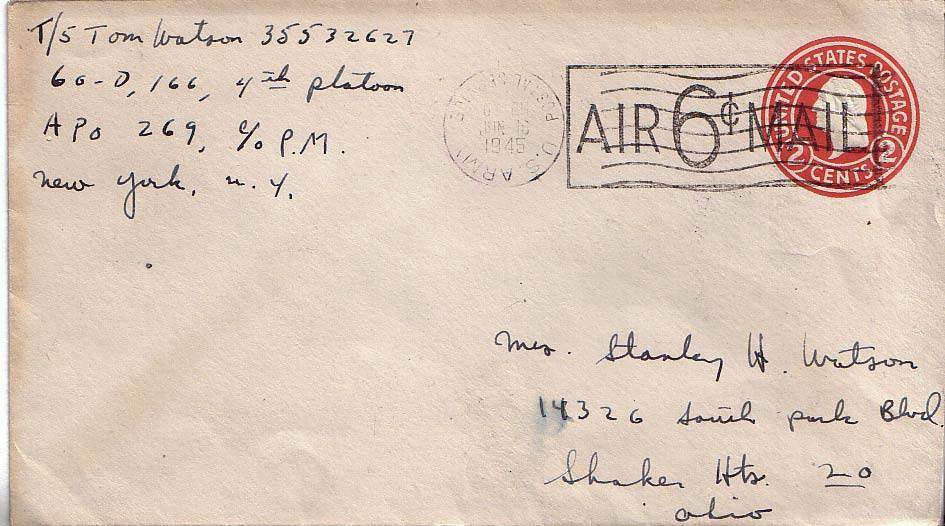 T/5 Tom Watson 35532627
60-D, 166, 4th platoon
APO 269, c/o P.M.
new york, n. y.
U.S. ARMY
POSTAL SERVICE
1945
AIR 6¢ MAIL
UNITED STATES POSTAGE
2 CENTS 2
Mrs. Stanley H. Watson
14326 South park Blvd.
Shaker Hts. 20
Ohio